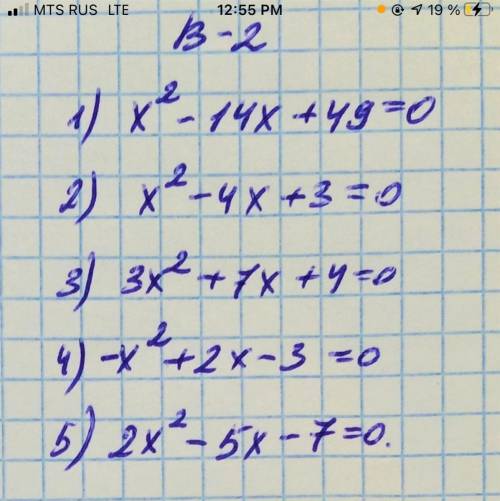 MTS RUS LTE 12:55 PM 19 %
В-2
1) x² - 14x + 49 = 0
2) x² - 4x + 3 = 0
3) 3x² + 7x + 4 = 0
4) -x² + 2x - 3 = 0
5) 2x² - 5x - 7 = 0.